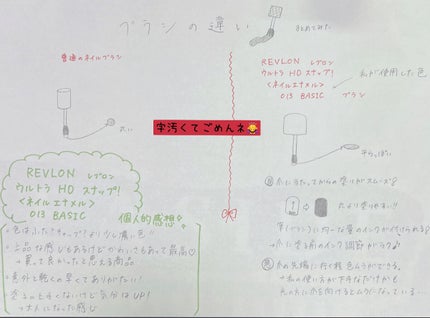 ブラシの違い
まとめてみた
普通のネイルブラシ
丸い
REVLON レブロン
ウルトラ HD スナップ!
<ネイルエナメル>
013 BASIC ブラシ
私が使用した色
平らっぽい
字汚くてごめんネ
REVLON レブロン
ウルトラ HD スナップ!
<ネイルエナメル>
013 BASIC
個人的感想
・色はふたキャップより少し濃い色
・上品な感じもあるけどかわいさもあって最高♡
→買って良かったと思える商品
・意外と乾くの早くてありがたい!
・塗るの上手くないけど気分はUP!
→大人になった感じ
良 爪に当たってからの塗りがスムーズ♪
丸より塗りやすい!!
筆(ブラシ)に均一な量のインクが付けられる
→爪に塗る前のインク調節がラク♪
悪 爪の先端に行く程色ムラができる。
→私の使い方が下手なだけかも